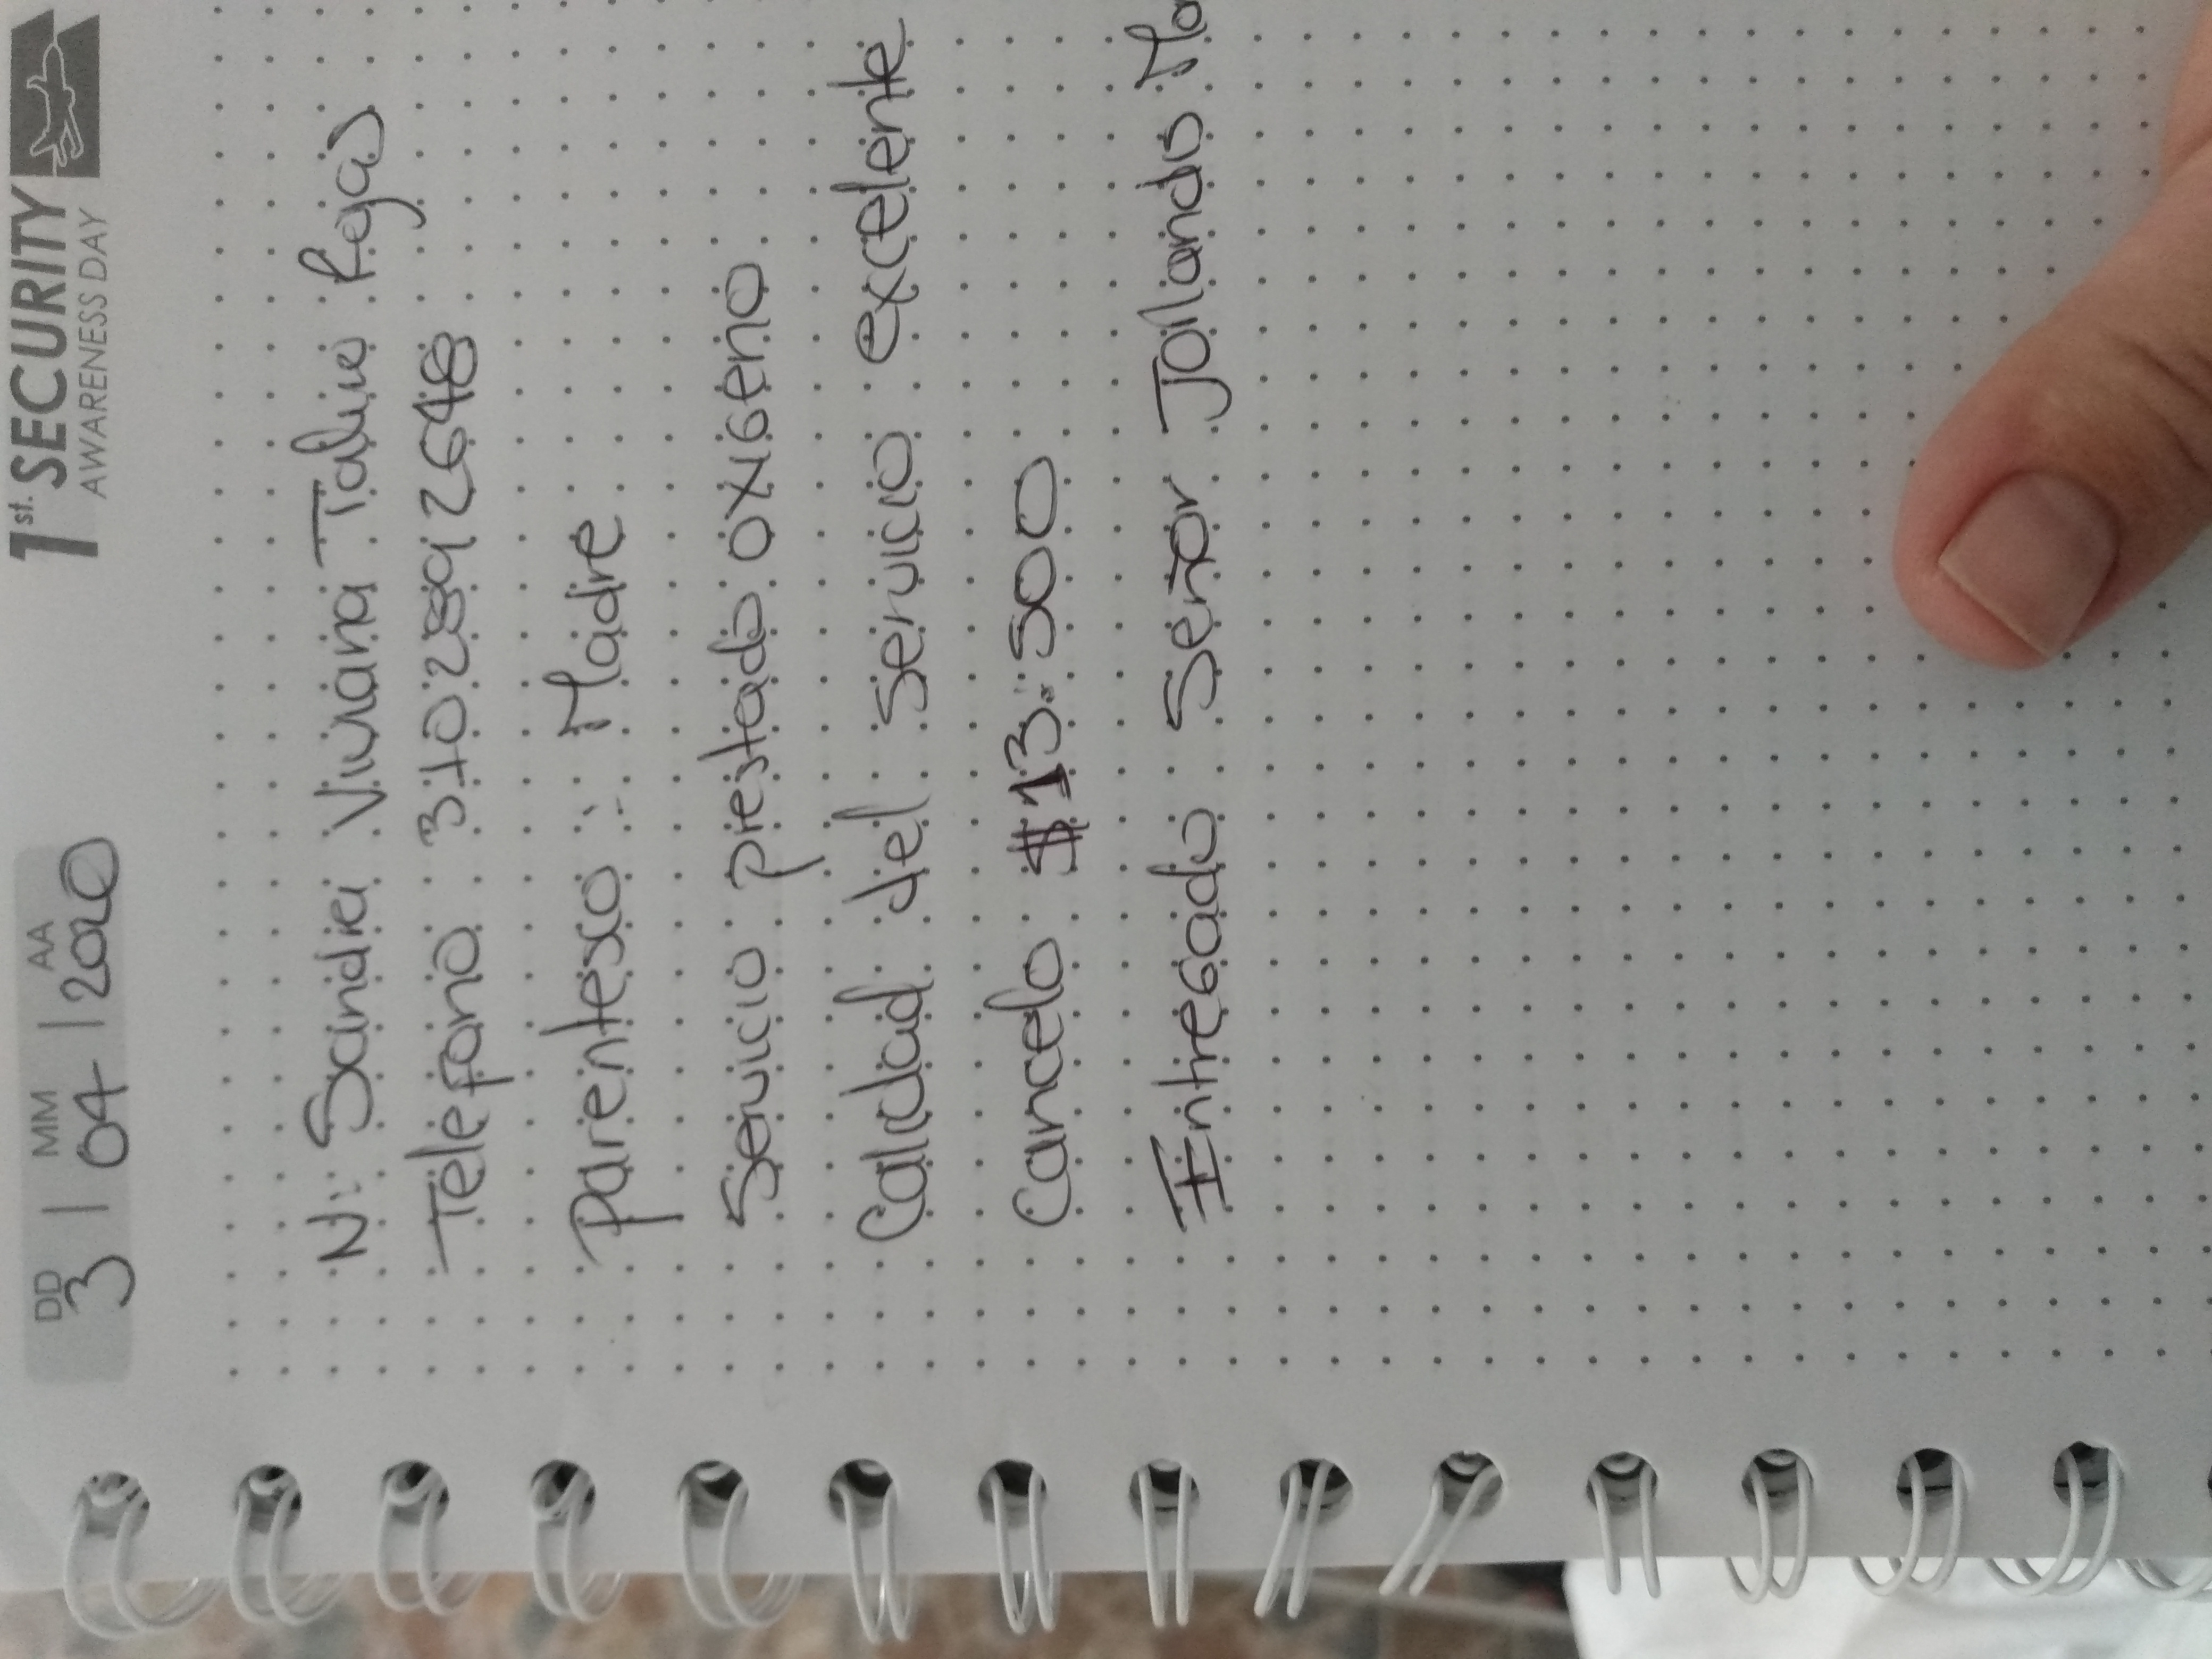 DD MM AA
3 | 04 | 2020
1st. SECURITY
AWARENESS DAY
N: Sandra Viviana Rojas
Telefono 3102892648
Parentesco: Madre
Servicio prestado oxigeno
Calidad del servicio excelente
Cancelo $13:500
Entregado Señor Jollando